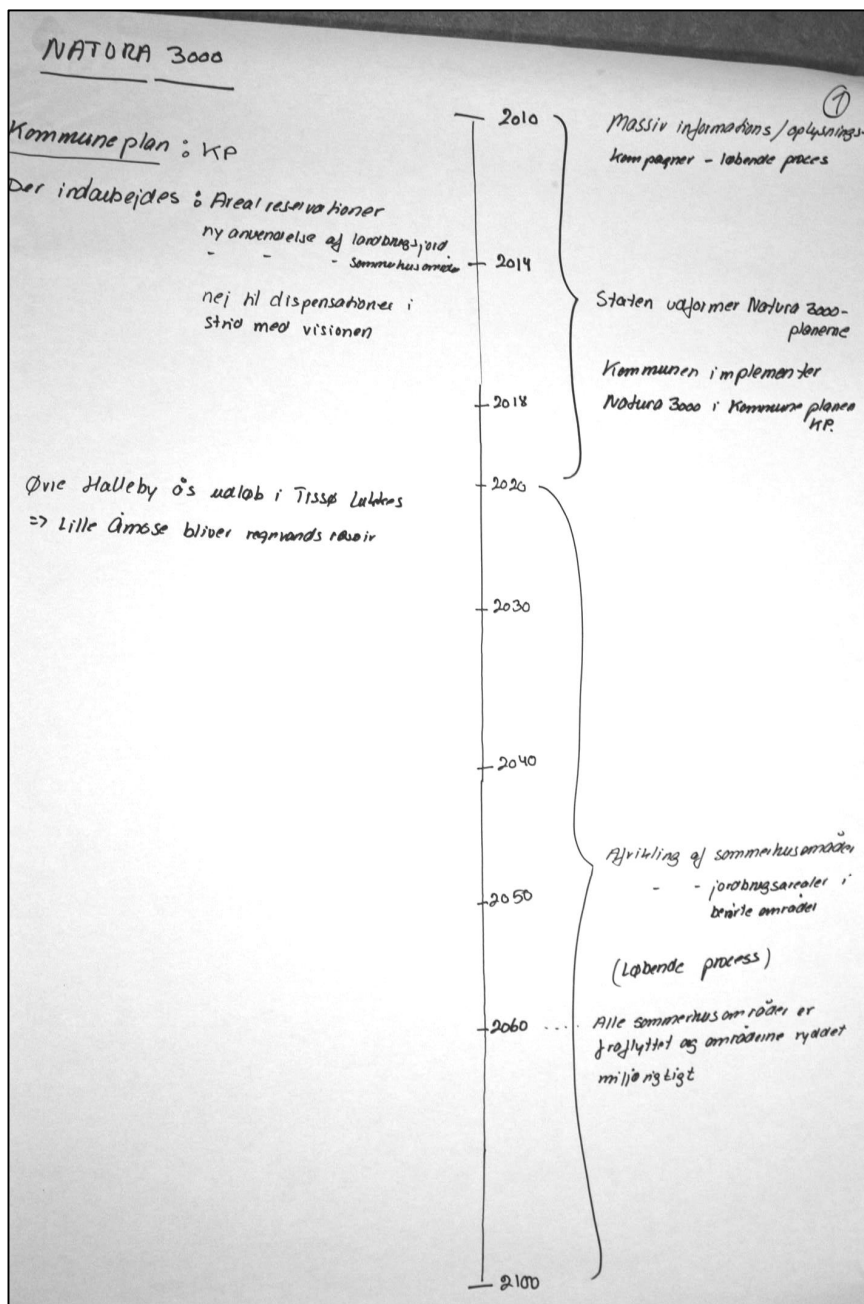 NATURA 3000
①
Kommuneplan : KP
Der indarbejdes : Arealreservationer
ny anvendelse af landbrugsjord
- - - sommerhusområde
nej til dispensationer i
strid med visionen
Øvre Halleby ås udløb i Tissø Lukkes
=> Lille Åmose bliver regnvands
2010
2014
2018
2020
2030
2040
2050
2060
2100
Massiv informations/oplysnings-
kampagner - løbende proces
Staten udformer Natura 3000-
planerne
Kommunen implementer
Natura 3000 i Kommuneplanen
KP.
Afvikling af sommerhusområder
- - jordbrugsarealer i
berørte områder
(Løbende process)
Alle sommerhusområder er
fraflyttet og områderne ryddet
miljørigtigt